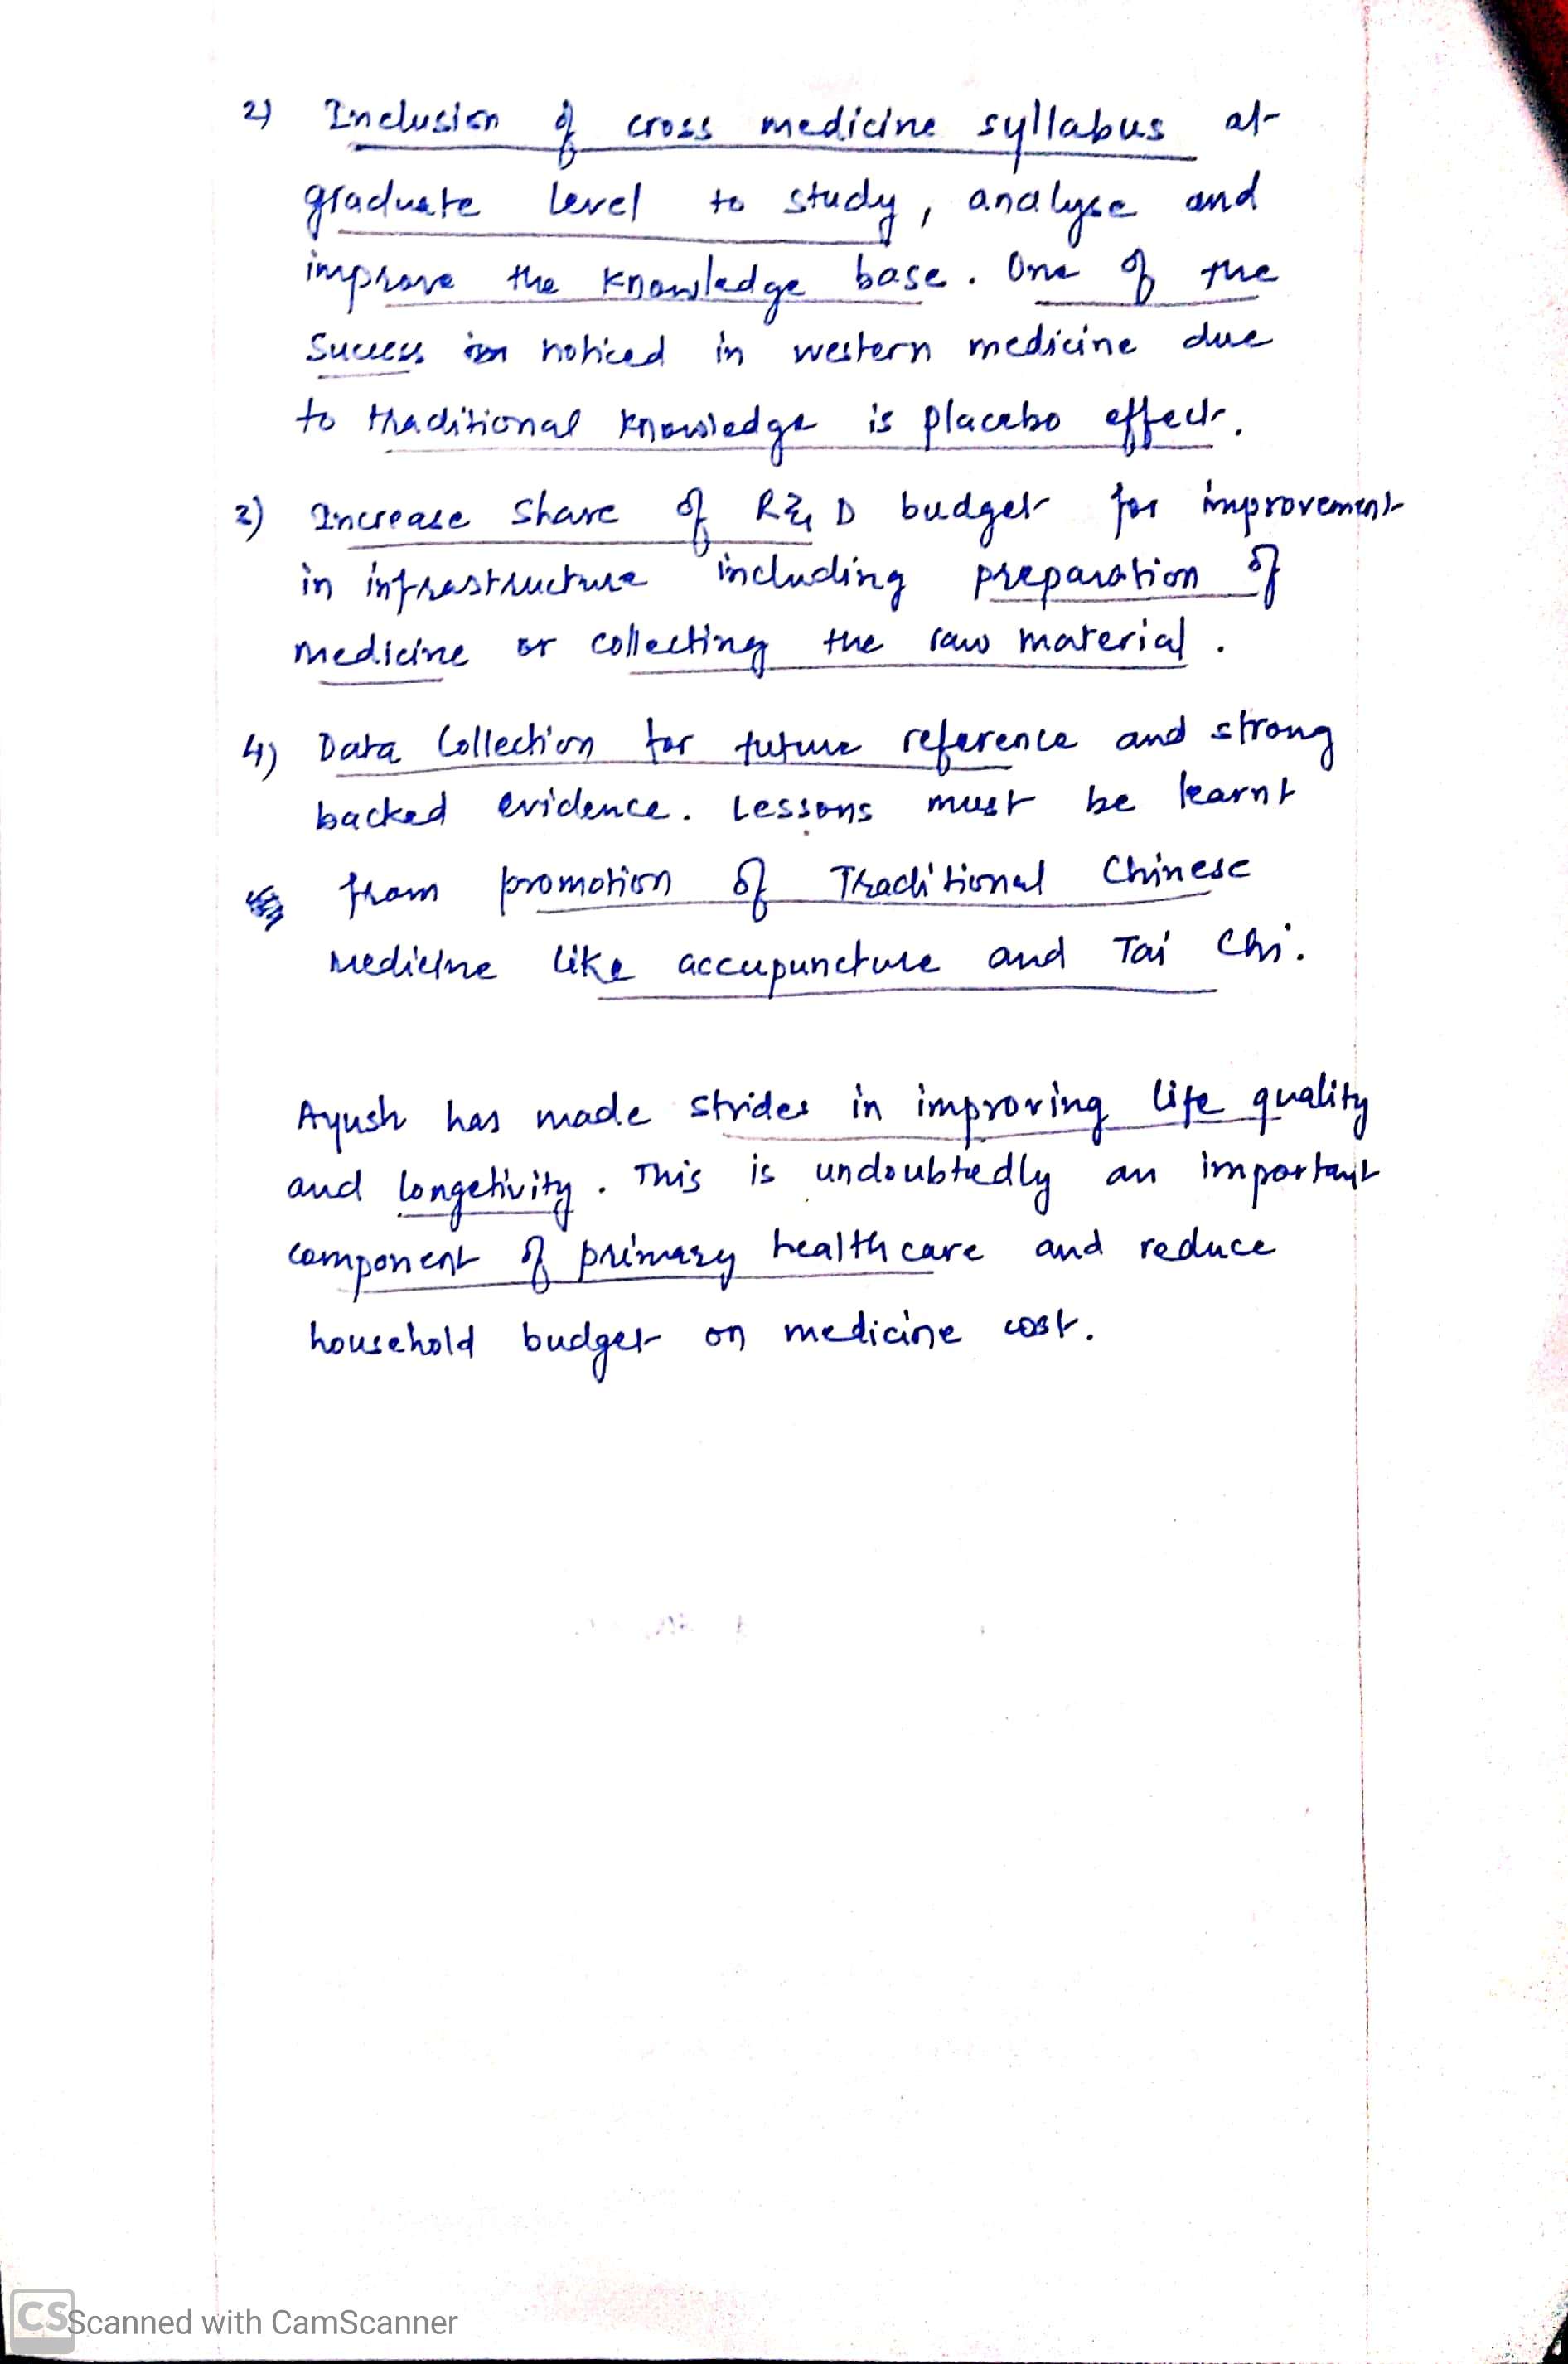 2) Inclusion of cross medicine syllabus at
graduate level to study, analyse and
improve the knowledge base. One of the
success noticed in western medicine due
to traditional knowledge is placebo effect.
3) Increase share of R & D budget for improvement
in infrastructure including preparation of
medicine or collecting the raw material.
4) Data Collection for future reference and strong
backed evidence. Lessons must be learnt
from promotion of Traditional Chinese
Medicine like accupuncture and Tai Chi.
Ayush has made strides in improving life quality
and longetivity. This is undoubtedly an important
component of primary healthcare and reduce
household budget on medicine cost.
CS Scanned with CamScanner